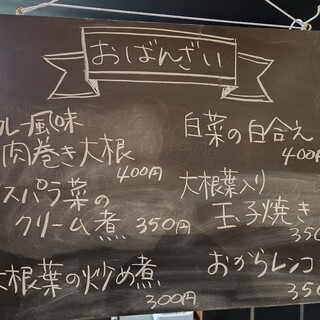 おばんざい
ル風味
肉巻き大根
400円
スパラ菜の
クリーム煮 350円
大根葉の炒め煮
300円
白菜の白合え
400円
大根葉入り
玉子焼き
350
おからレンコ
350